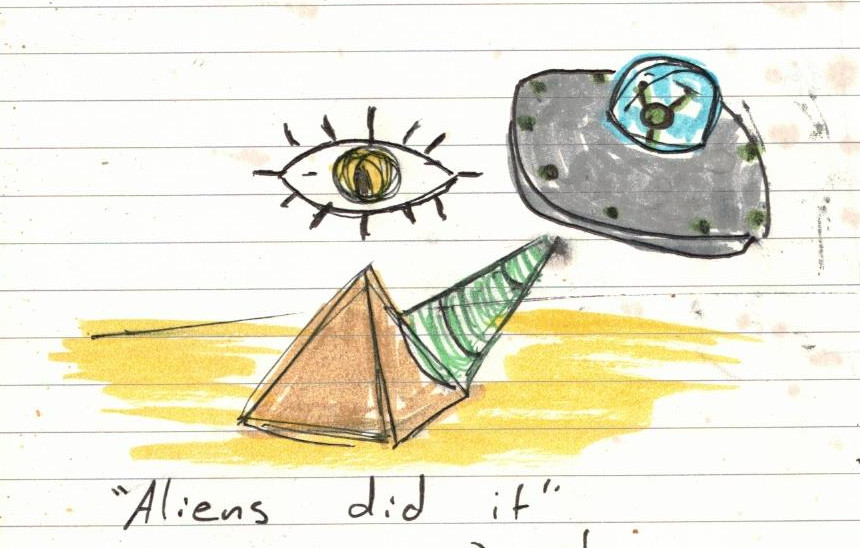 "Aliens did it"